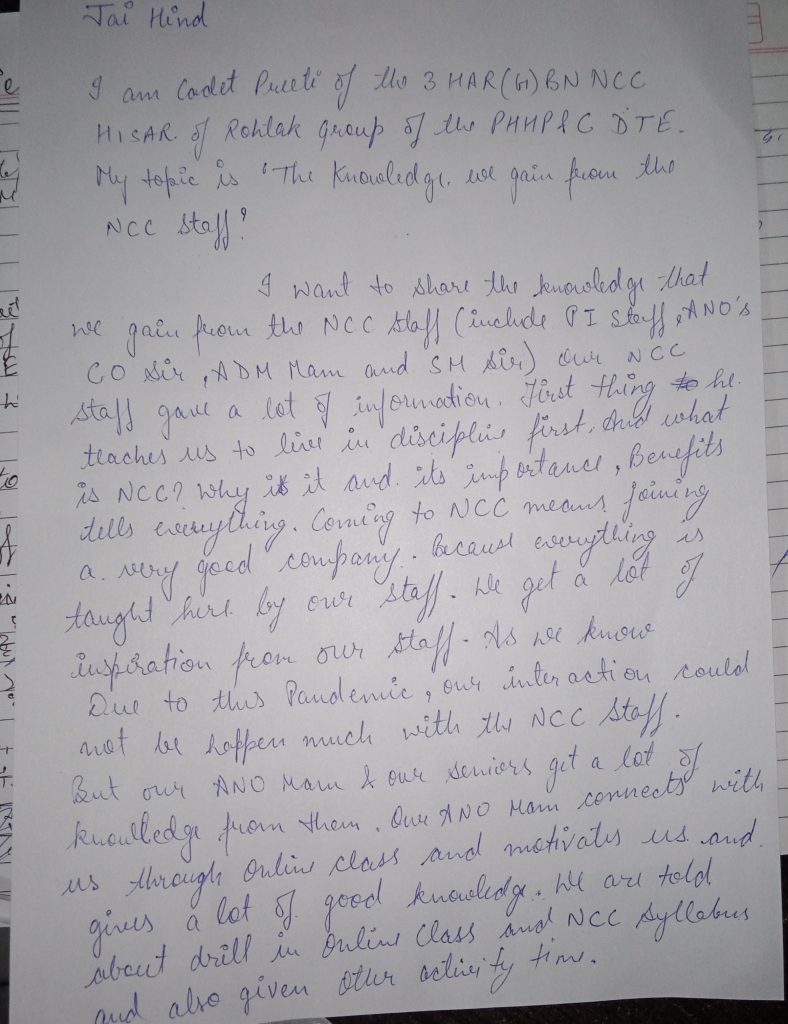 Jai Hind
I am Cadet Preeti of the 3 HAR(G) BN NCC
HISAR of Rohtak group of the PHHP&C DTE.
My topic is 'The Knowledge. we gain from the
NCC Staff'
I want to share the knowledge that
we gain from the NCC Staff (include PI Staff, ANO's
CO Sir, ADM Mam and SM Sir) Our NCC
staff gave a lot of information. First thing he
teaches us to live in discipline first. And what
is NCC? Why is it and its importance, Benefits
tells everything. Coming to NCC means joining
a very good company. Because everything is
taught here by our staff. We get a lot of
inspiration from our staff. As we know
Due to this Pandemic, our interaction could
not be happen much with the NCC Staff.
But our ANO Mam & our seniors get a lot of
knowledge from them. Our ANO Mam connects with
us through Online class and motivates us and
gives a lot of good knowledge. We are told
about drill in Online Class and NCC Syllabus
and also given other activity time.